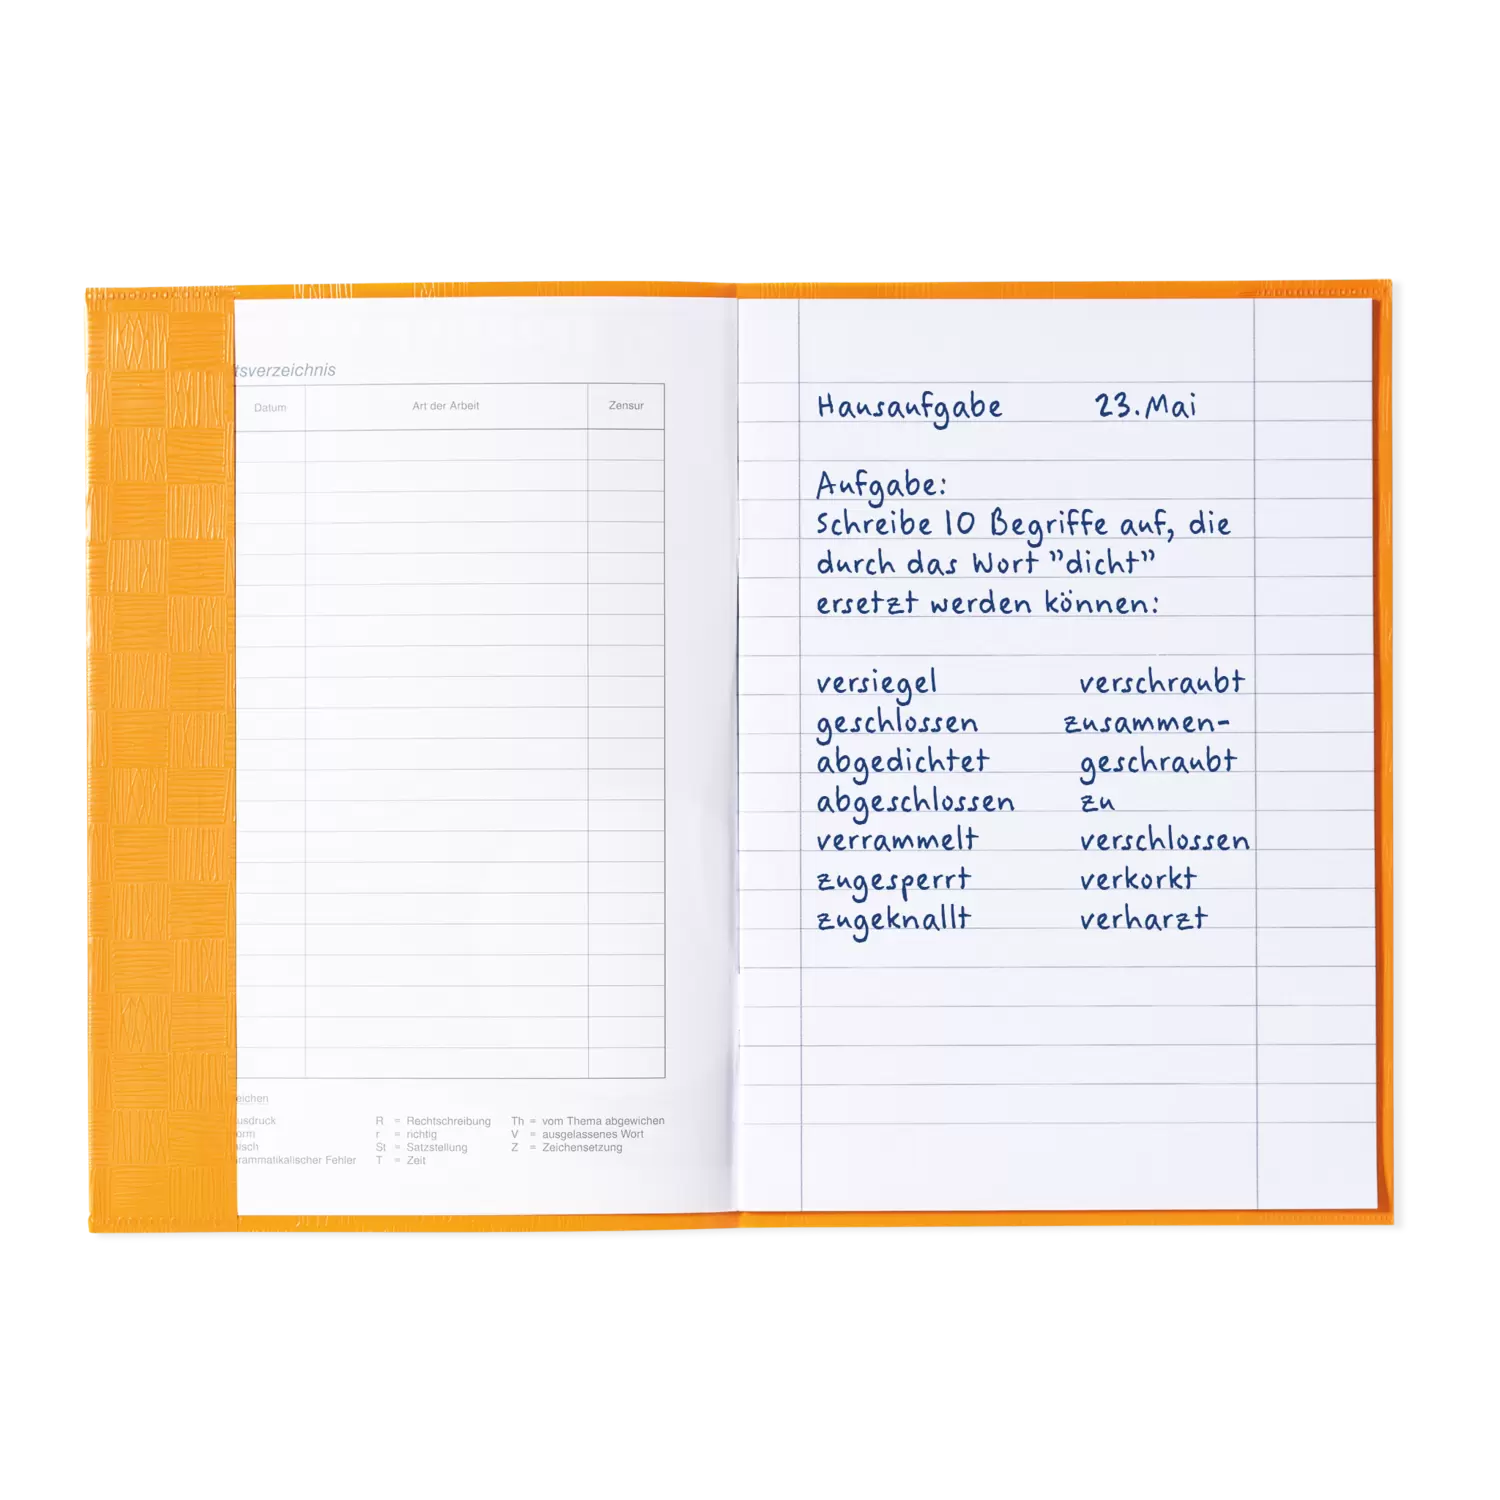 tsverzeichnis
Datum Art der Arbeit Zensur
eichen
usdruck R = Rechtschreibung Th = vom Thema abgewichen
orm r = richtig V = ausgelassenes Wort
isch St = Satzstellung Z = Zeichensetzung
rammatikalischer Fehler T = Zeit
Hausaufgabe 23. Mai
Aufgabe:
Schreibe 10 Begriffe auf, die
durch das Wort "dicht"
ersetzt werden können:
versiegel verschraubt
geschlossen zusammen-
abgedichtet geschraubt
abgeschlossen zu
verrammelt verschlossen
zugesperrt verkorkt
zugeknallt verharzt